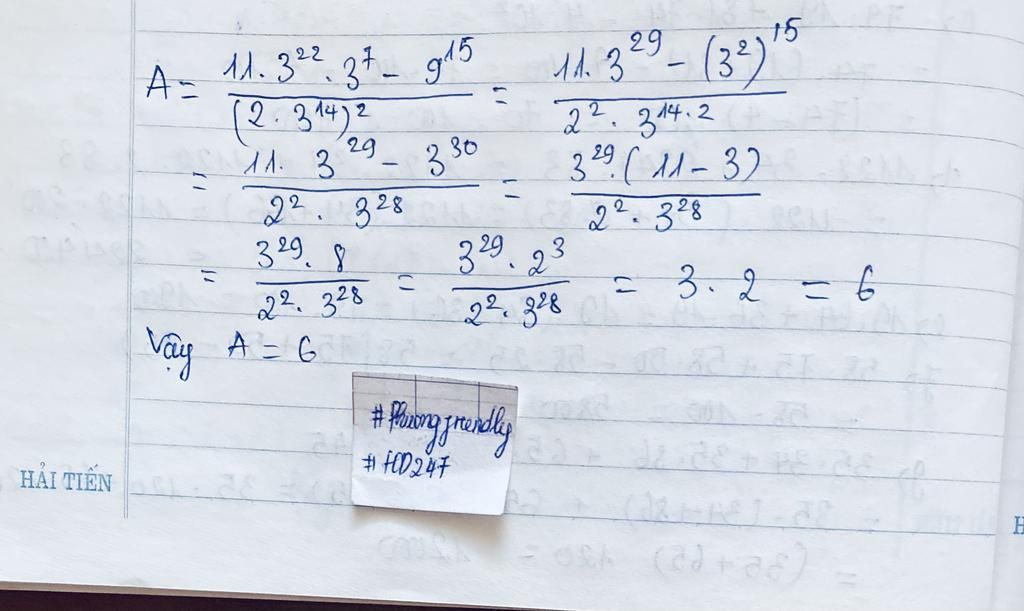 A = \frac{11 \cdot 3^{22} \cdot 3^7 - 9^{15}}{(2 \cdot 3^{14})^2} = \frac{11 \cdot 3^{29} - (3^2)^{15}}{2^2 \cdot 3^{14 \cdot 2}}
= \frac{11 \cdot 3^{29} - 3^{30}}{2^2 \cdot 3^{28}} = \frac{3^{29} \cdot (11 - 3)}{2^2 \cdot 3^{28}}
= \frac{3^{29} \cdot 8}{2^2 \cdot 3^{28}} = \frac{3^{29} \cdot 2^3}{2^2 \cdot 3^{28}} = 3 \cdot 2 = 6
Vậy A = 6
#Phuongfriendly
#HD247
HẢI TIẾN